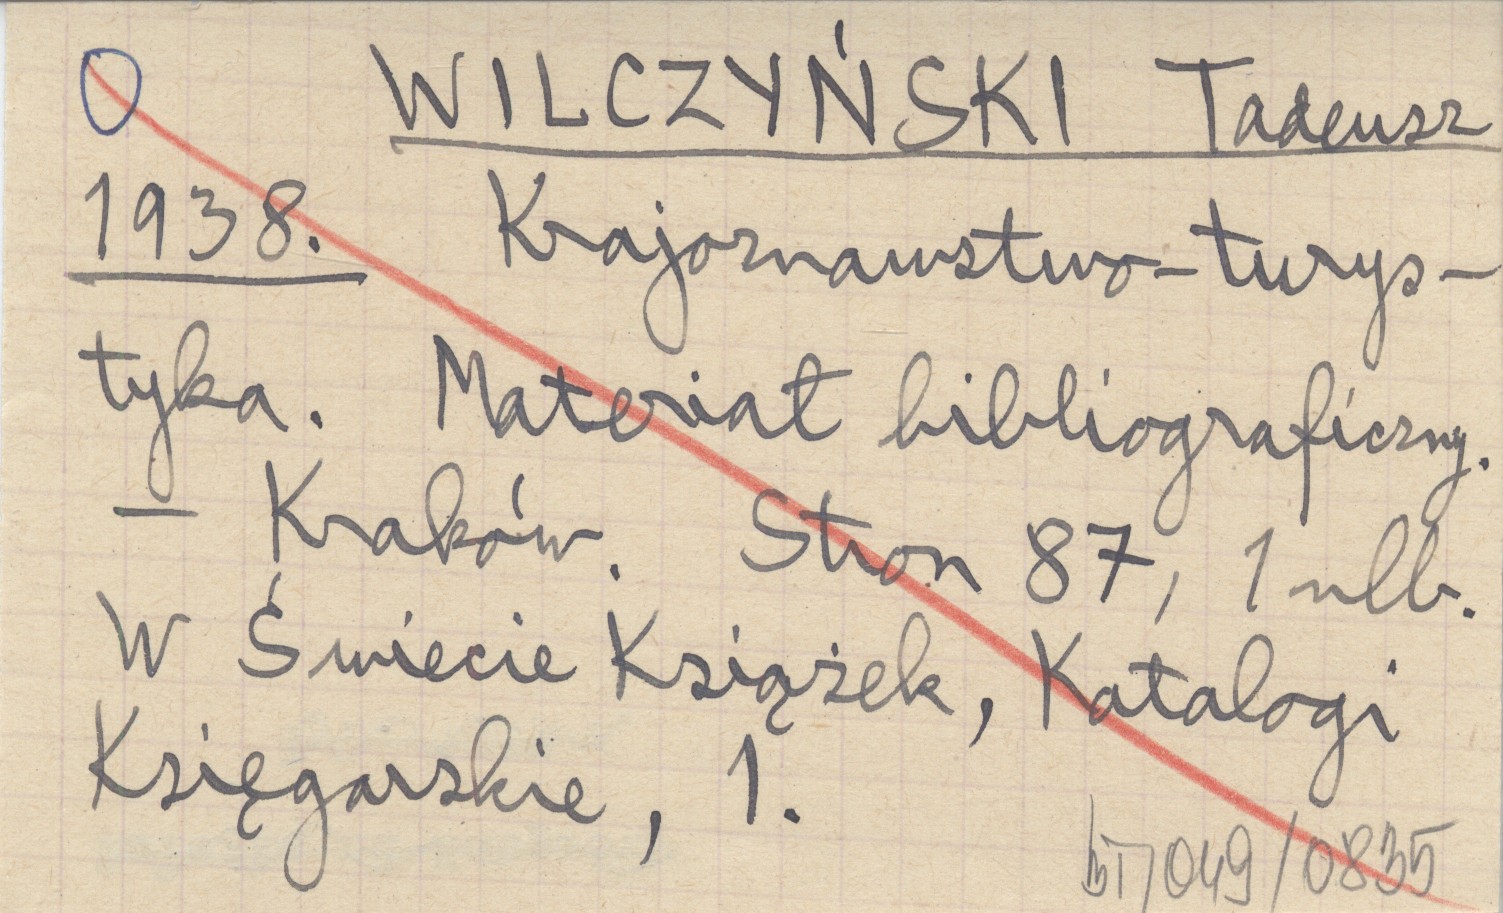 O WILCZYŃSKI Tadeusz
1938. Krajoznawstwo-turys-
tyka. Materiał bibliograficzny.
— Kraków. Stron 87, 1 nlb.
W Świecie Książek, Katalogi
Księgarskie, 1.
BT/049/0835